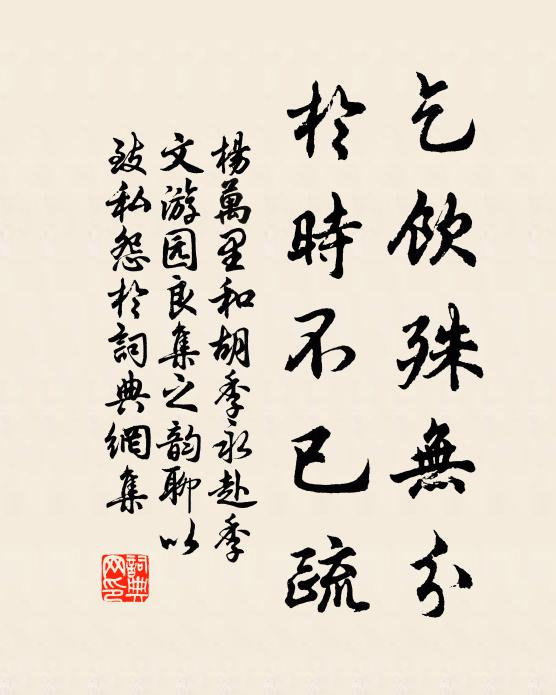 乞飲殊無分
於時不已疏
楊萬里和胡季永赴季
文游园良集之韵聊以
致私怨於詞典網集
詞典网印